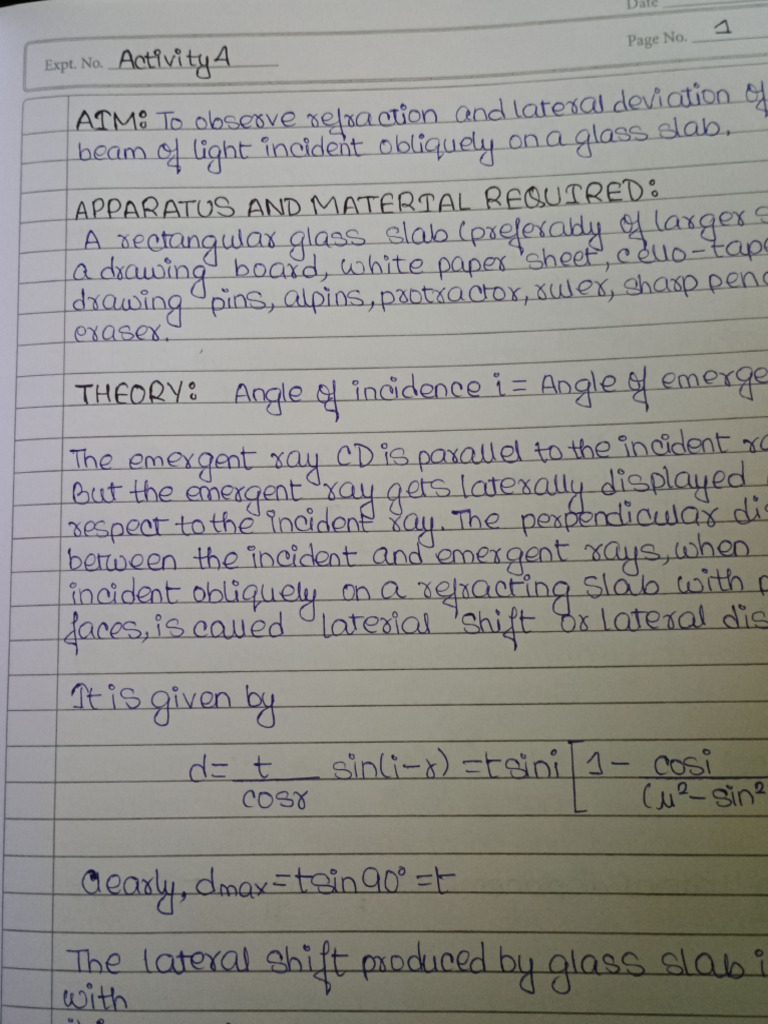 Date
Expt. No. Activity 4
Page No. 1
AIM: To observe refraction and lateral deviation of
beam of light incident obliquely on a glass slab.
APPARATUS AND MATERIAL REQUIRED:
A rectangular glass slab (preferably of larger s
a drawing board, white paper sheet, cello-tape
drawing pins, alpins, protractor, ruler, sharp penc
eraser.
THEORY: Angle of incidence i = Angle of emerge
The emergent ray CD is parallel to the incident ra
But the emergent ray gets laterally displayed
respect to the incident ray. The perpendicular dis
between the incident and emergent rays, when
incident obliquely on a refracting slab with p
faces, is called laterial shift or lateral dis
It is given by
d= t/cosr sin(i-r) = tsini [1 - cosi/(μ²-sin²
Clearly, dmax = tsin90° = t
The lateral shift produced by glass slab i
with